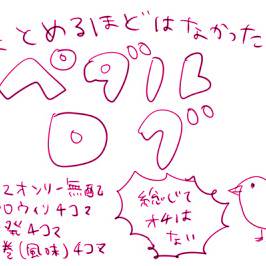 とめるほどはなかった
ペダル
ログ
マオンリー無配
ロウィソ4コマ
発4コマ
巻(風味)4コマ
総じて
オチは
ない